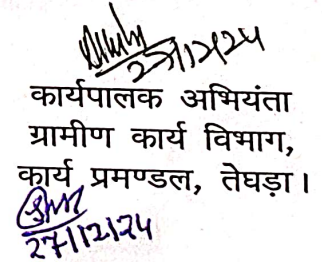 27/12/24
कार्यपालक अभियंता
ग्रामीण कार्य विभाग,
कार्य प्रमण्डल, तेघड़ा।
27/12/24